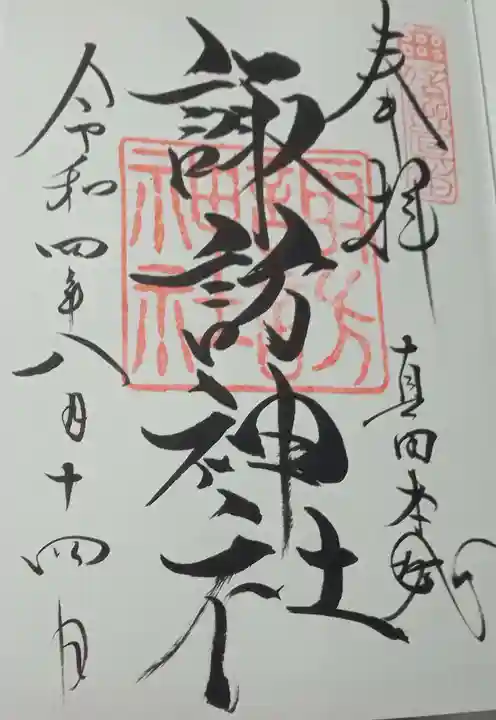 奉拝
真田本城
諏訪神社
諏訪神社
令和四年八月十四日